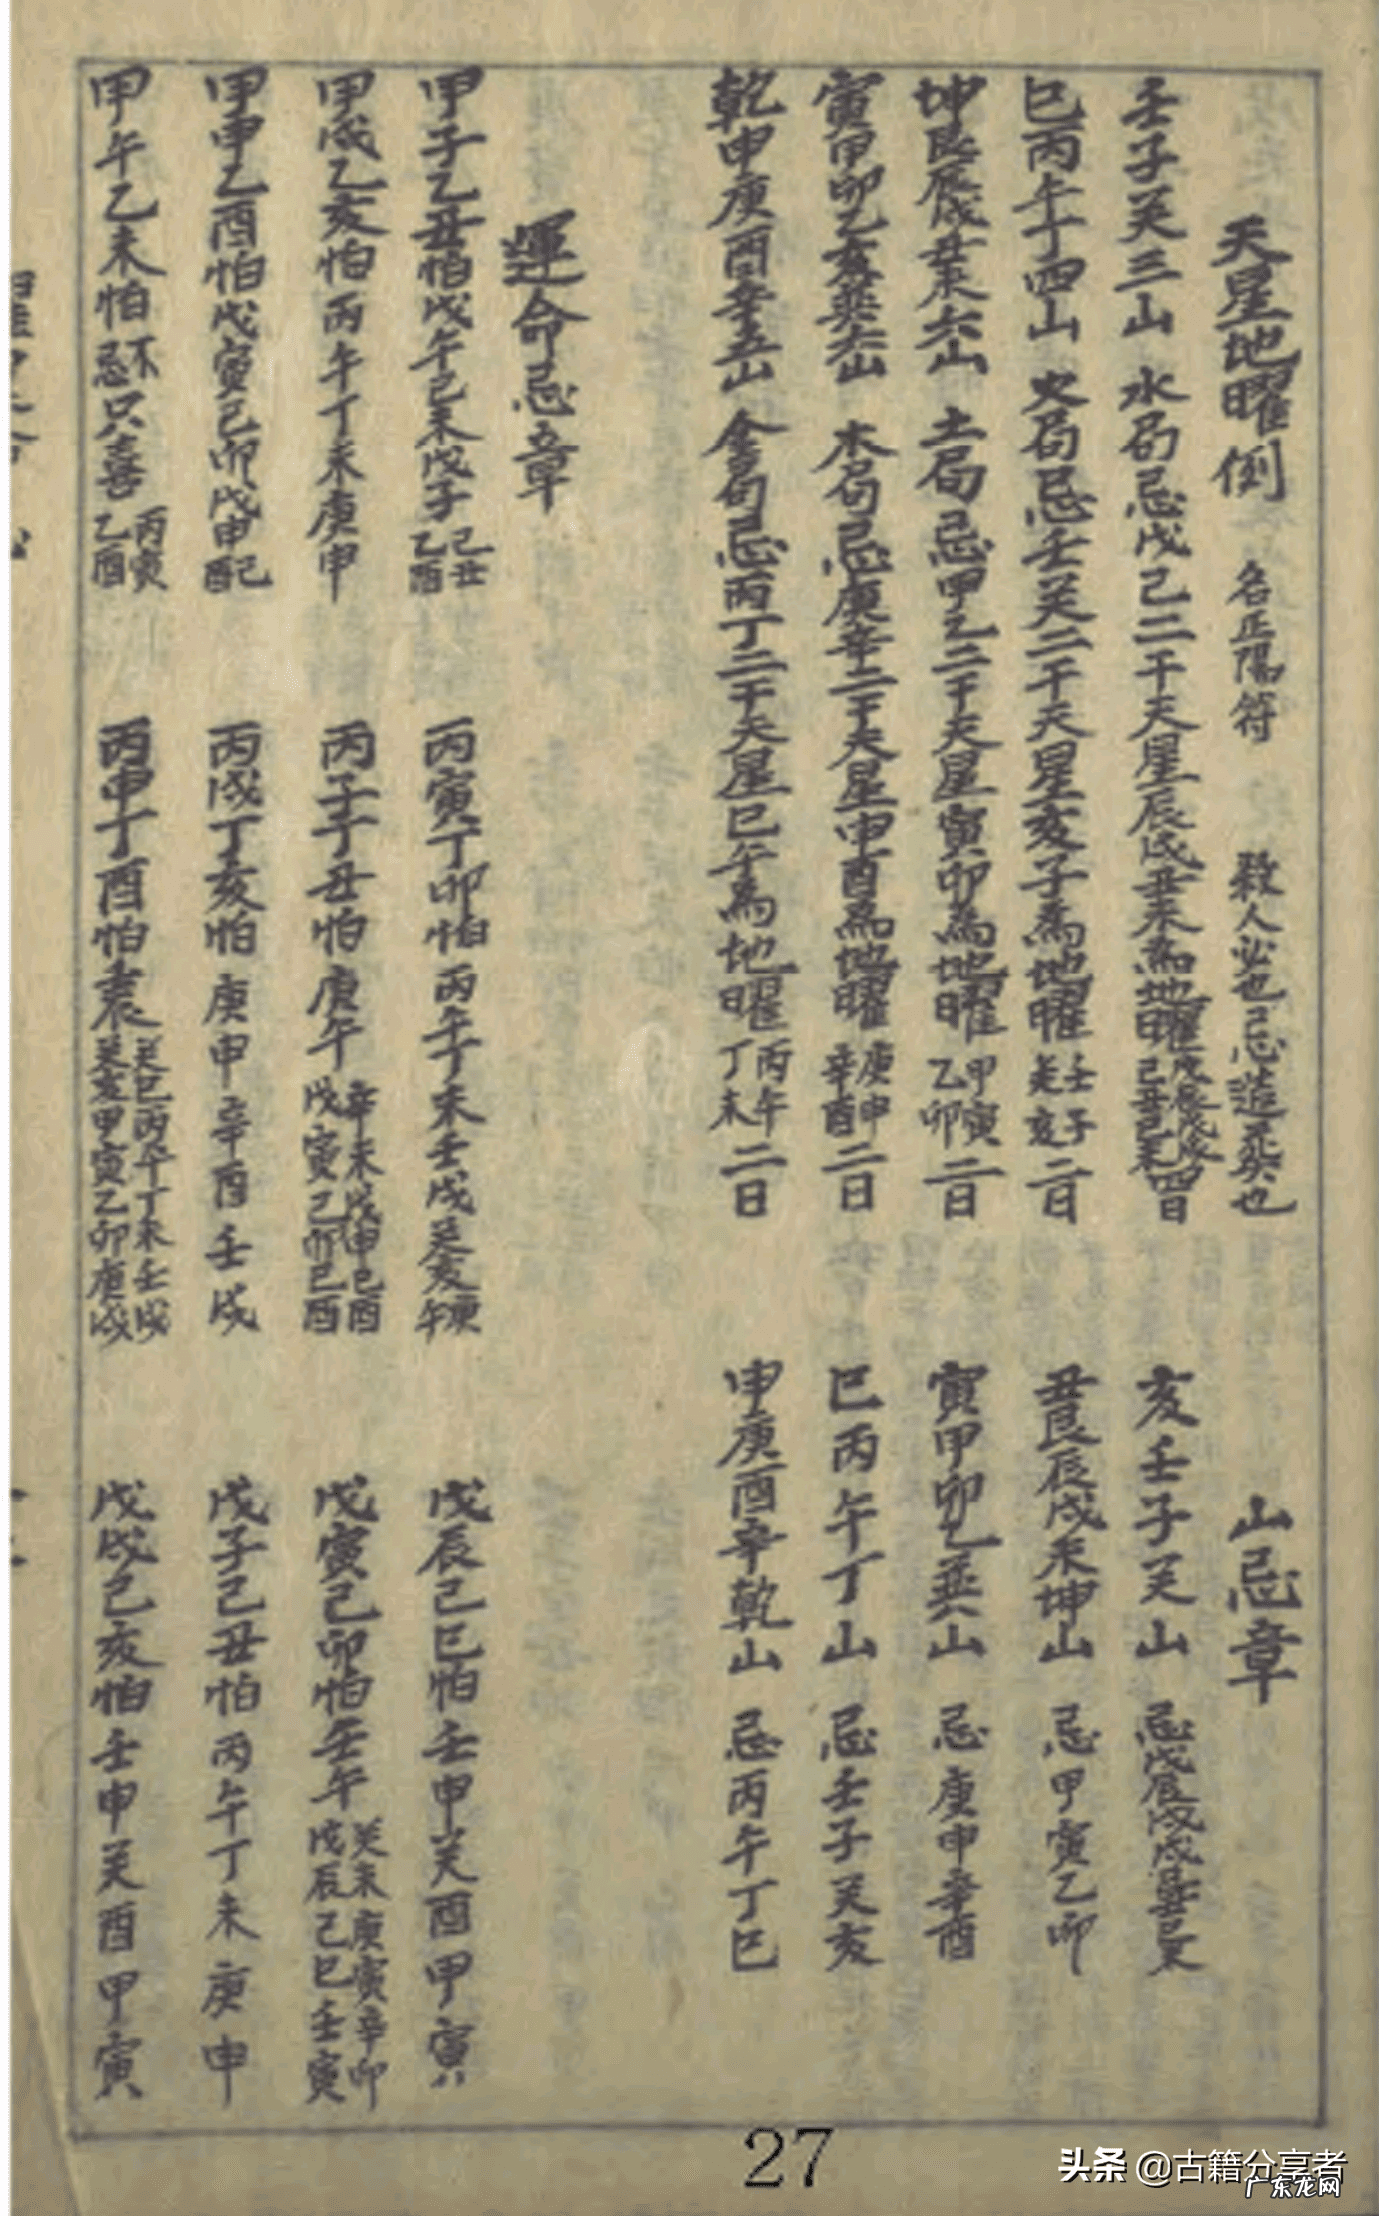 天星地曜倒 名正陽符 殺人必也忌造葬也
壬子癸三山 水局忌戊己二干天星辰戌丑未為地曜戊辰戊戌己丑己未四日
巳丙午丁四山 火局忌壬癸二干天星亥子為地曜壬子癸亥二日
坤艮辰戌丑未六山 土局忌甲乙二干天星寅卯為地曜甲寅乙卯二日
寅甲卯乙亥巽六山 木局忌庚辛二干天星申酉為地曜庚申辛酉二日
乾申庚酉辛五山 金局忌丙丁二干天星巳午為地曜丙午丁未二日
山忌章
亥壬子癸山 忌戊辰戊戌己丑己未
丑艮辰戌未坤山 忌甲寅乙卯
寅甲卯乙巽山 忌庚申辛酉
巳丙午丁山 忌壬子癸亥
申庚酉辛乾山 忌丙午丁巳
運命忌章
甲子乙丑怕戊午己未戊子己丑乙酉 丙寅丁卯怕丙午丁未壬戌癸亥庚午 戊辰己巳怕壬申癸酉甲寅
甲戌乙亥怕丙午丁未庚申 丙子丁丑怕庚午辛未戊申己酉戊寅己卯己酉 戊寅己卯怕壬午癸未庚寅辛卯戊辰己巳壬寅
甲申乙酉怕戊寅己卯戊申己酉 丙戌丁亥怕庚申辛酉壬戌 戊子己丑怕丙午丁未庚申
甲午乙未怕不忌只喜丙寅乙酉 丙申丁酉怕癸巳丙午丁未壬戌癸亥甲寅乙卯庚戌 戊戌己亥怕壬申癸酉甲寅
27
头条 @古籍分享者
广东龙网